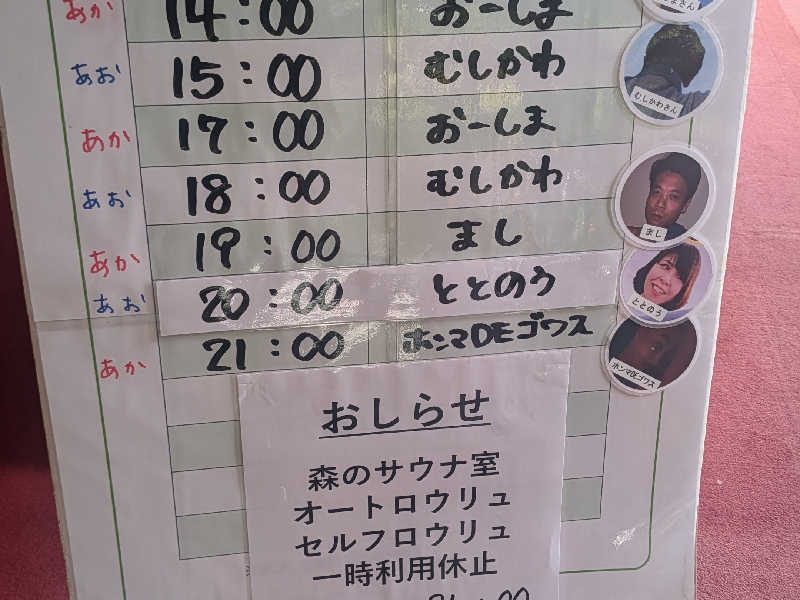 あか 14:00 おーしま
あお 15:00 むしかわ
むしかわさん
あか 17:00 おーしま
あお 18:00 むしかわ
あか 19:00 まし
まし
あお 20:00 ととのう
ととのう
あか 21:00 ホンマDEゴウス
ホンマDEゴウス
おしらせ
森のサウナ室
オートロウリュ
セルフロウリュ
一時利用休止